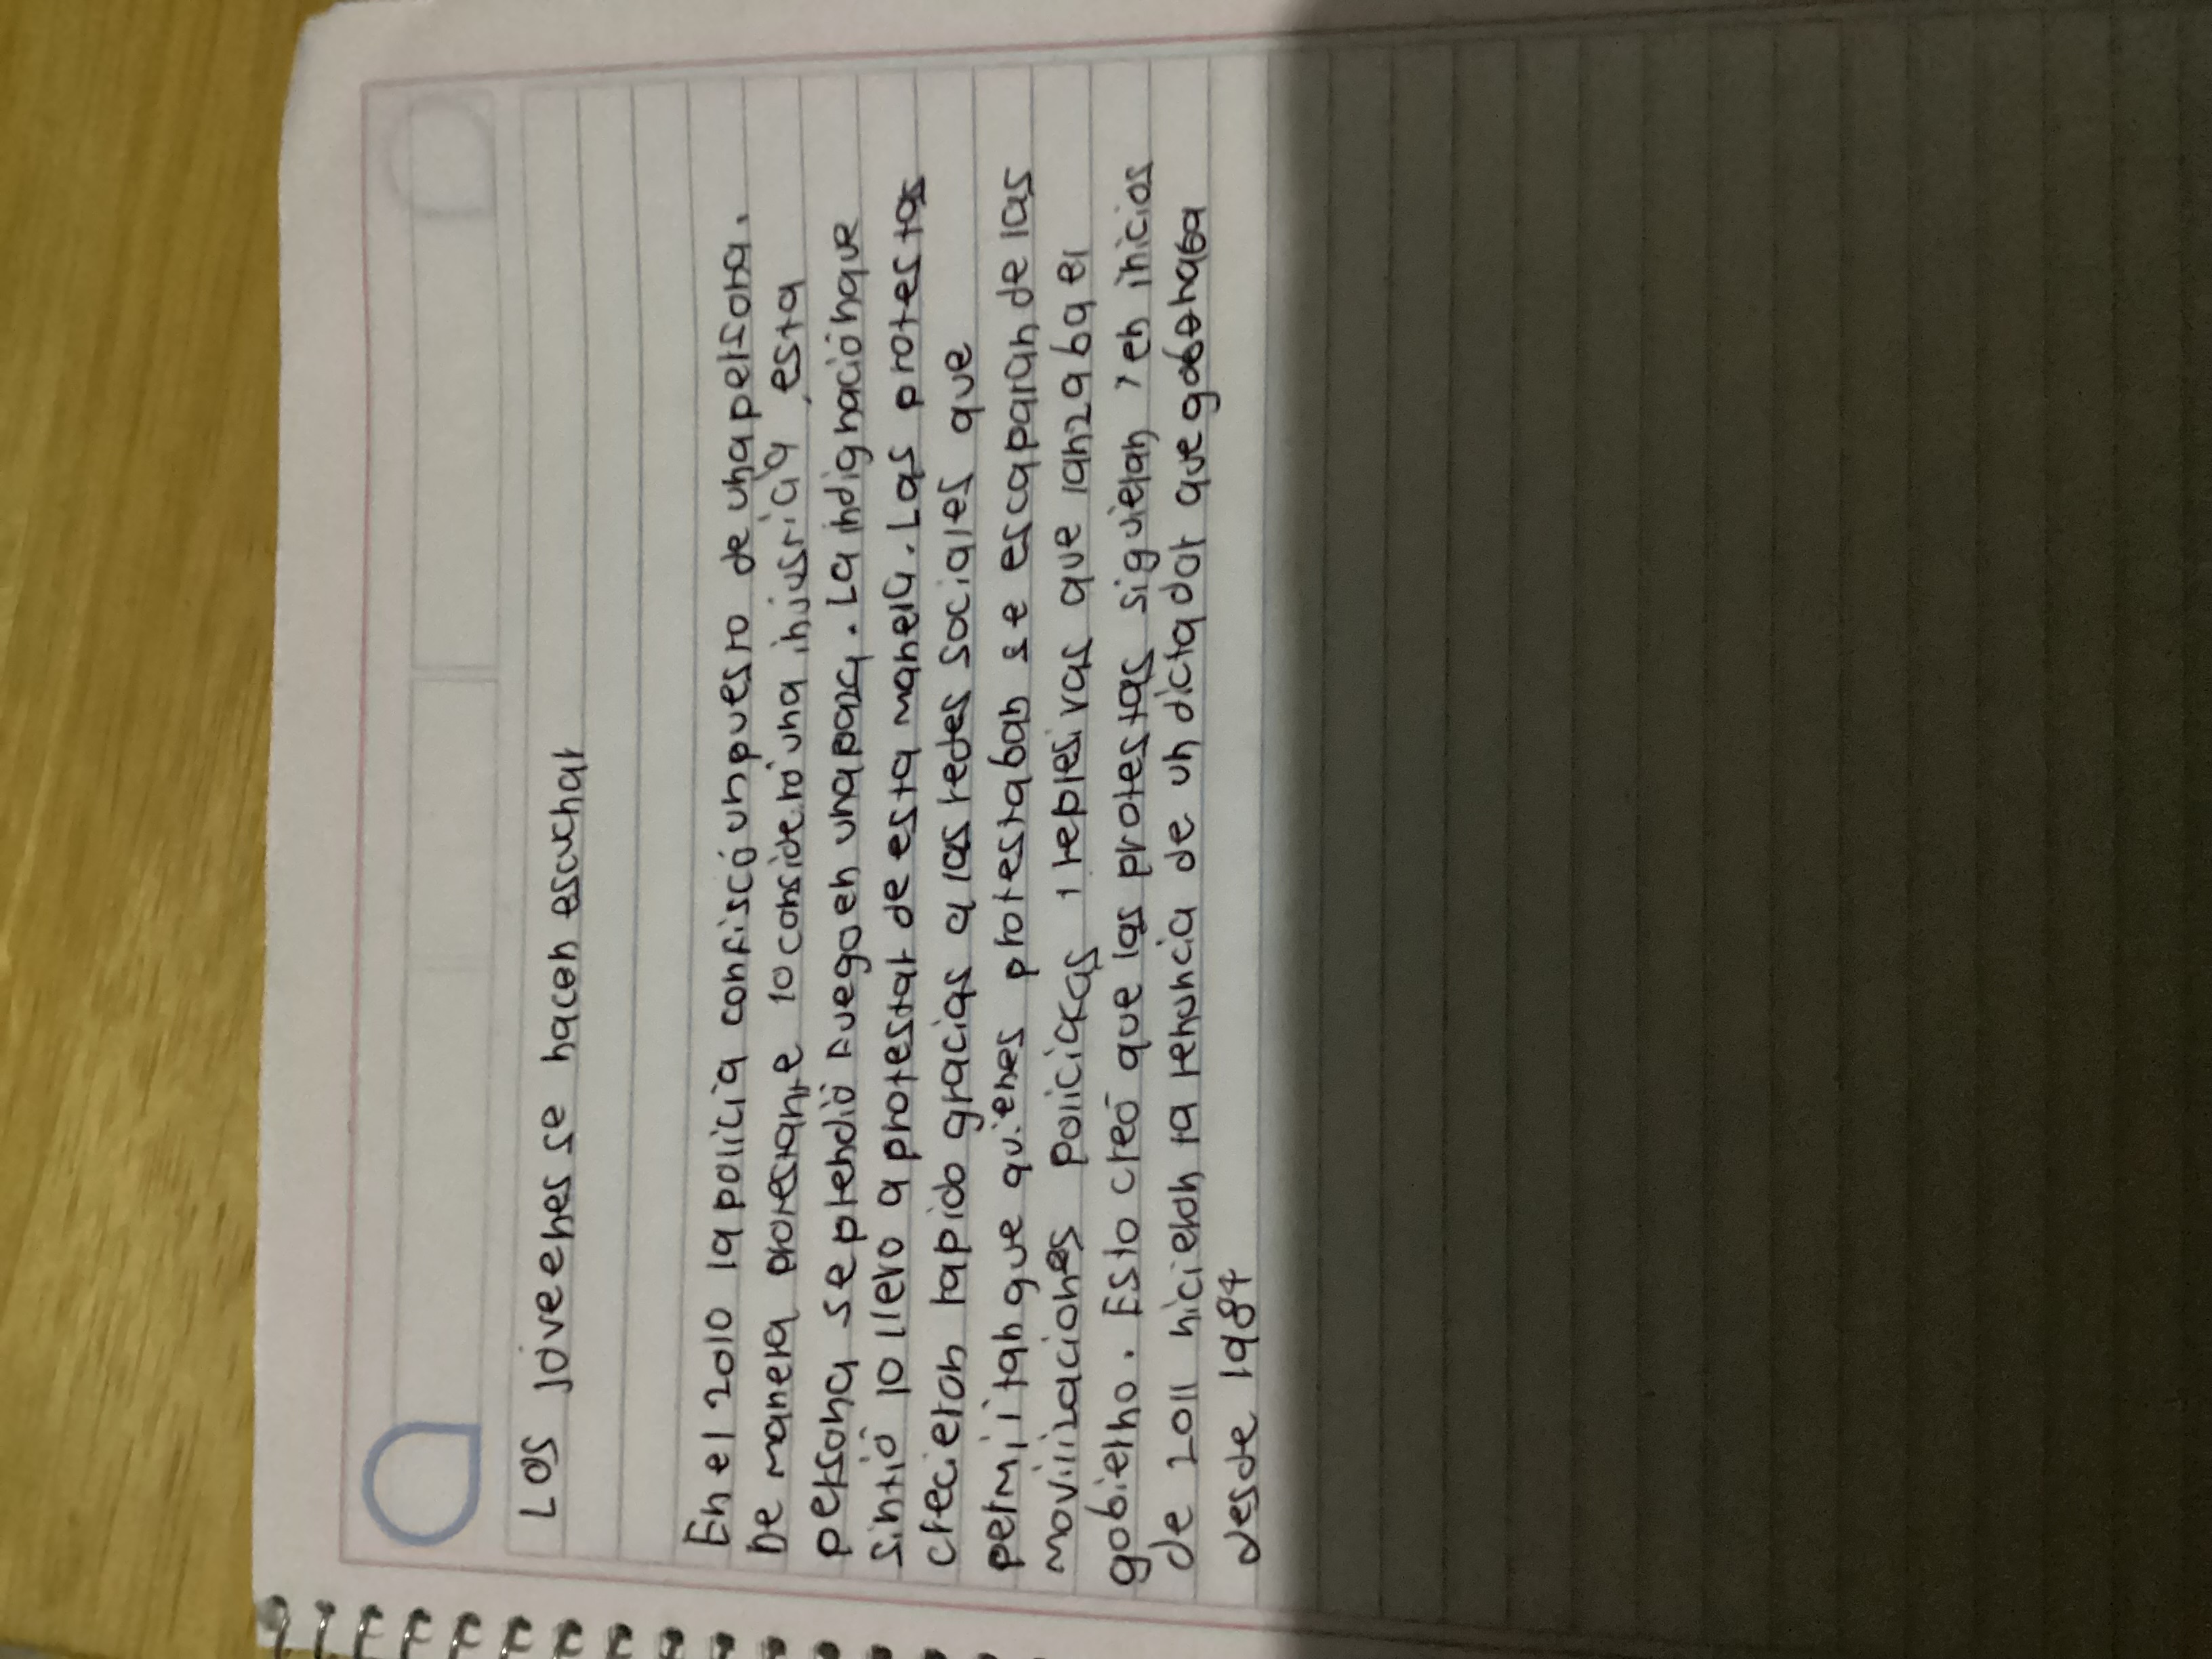 Los jóvenes se hacen escuchar
En el 2010 la policia confiscó un puesto de una persona.
De manera protestante lo consideró una injusticia, esta
persona se prendió fuego en una paza. La indignación que
sintió lo llevo a protestar de esta manera. Las protestas
crecieron rapido gracias a las redes sociales que
permiitan que quienes protestaban se escaparan de las
movilizaciones policiacas represivas que lanzaba el
gobierno. Esto creó que las protestas siguieran, en inicios
de 2011 hicieron la renuncia de un dictador que gobernaba
desde 1987